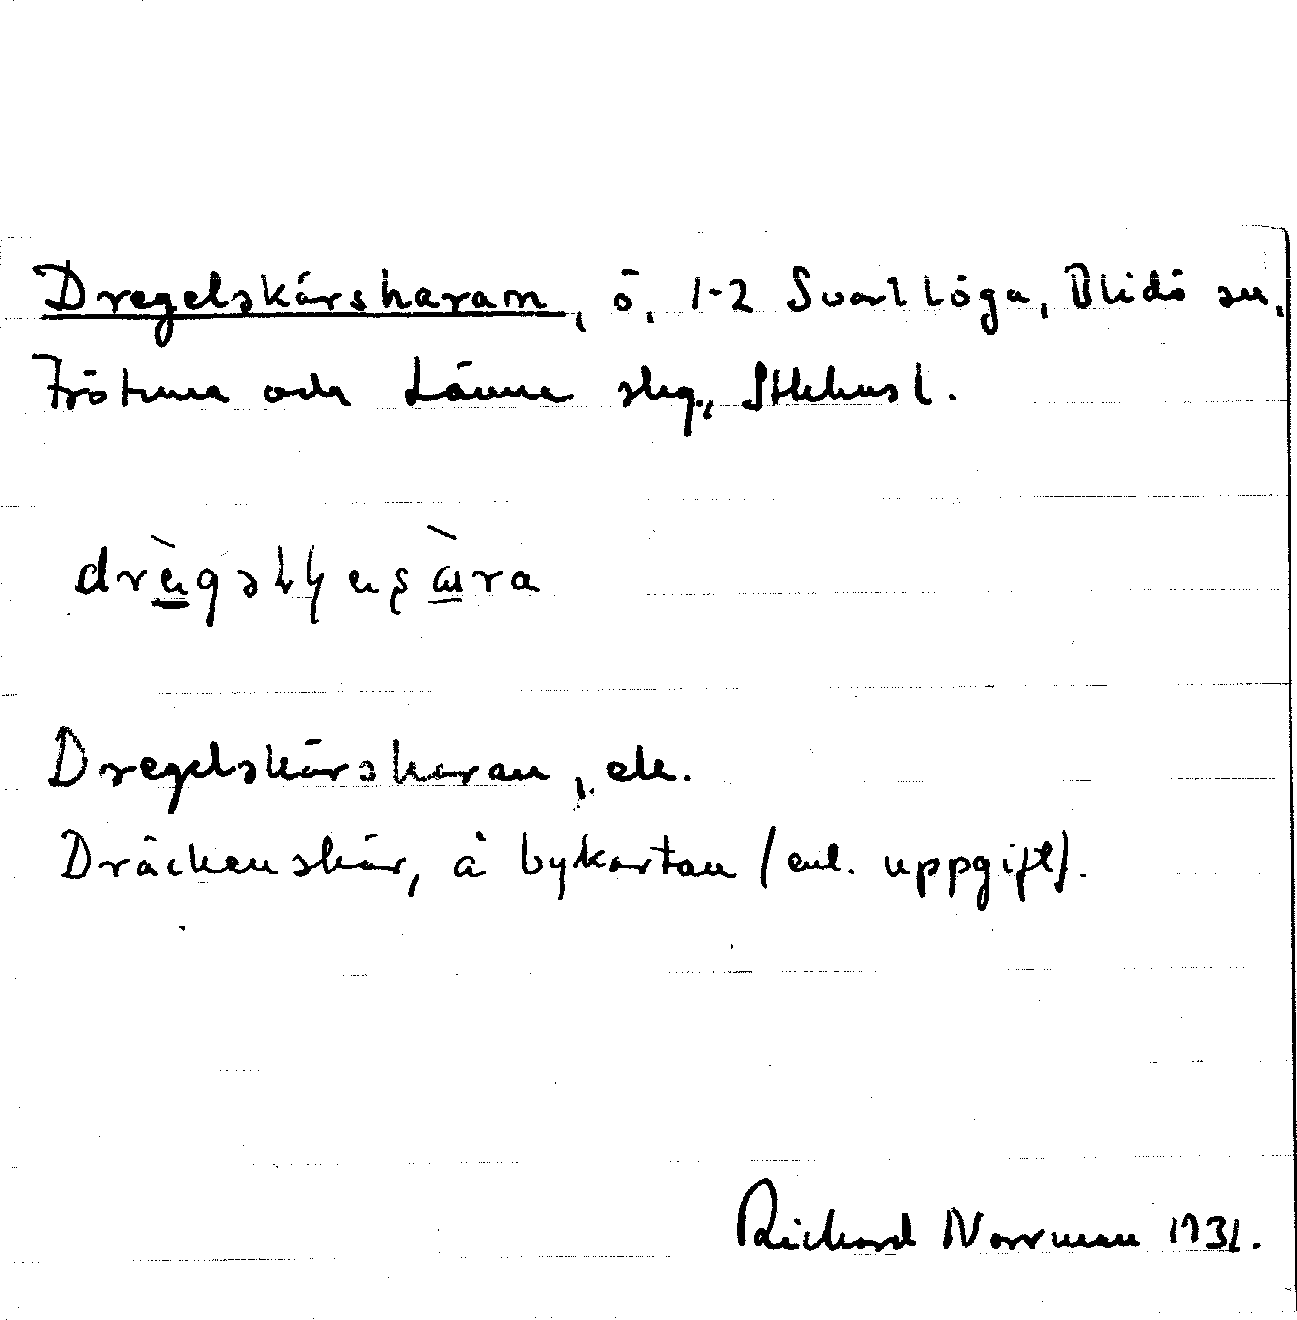 Dregelskärsharam, ö, 1-2 Svartlöga, Blidö sn,
Frötuna och Länna skg., Sthlms l.
Dregelskärsharan, ek.
Dräckenskär, å bykartan (enl. uppgift).
Richard Norrman 1931.